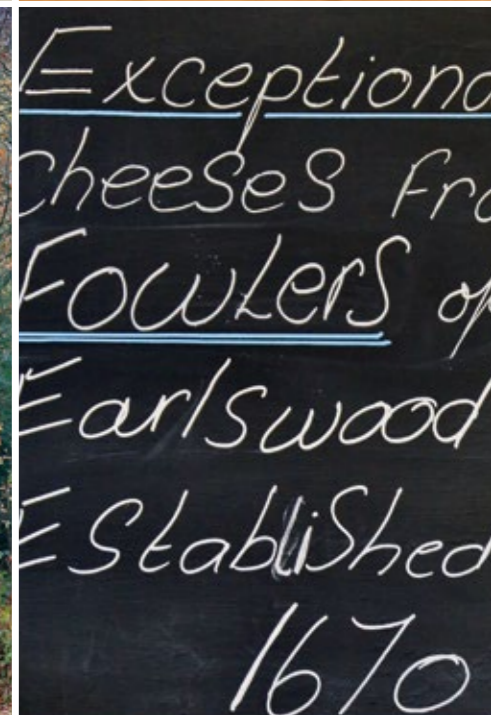 Exceptiona
cheeses fro
Fowlers of
Earlswood
Established
1670